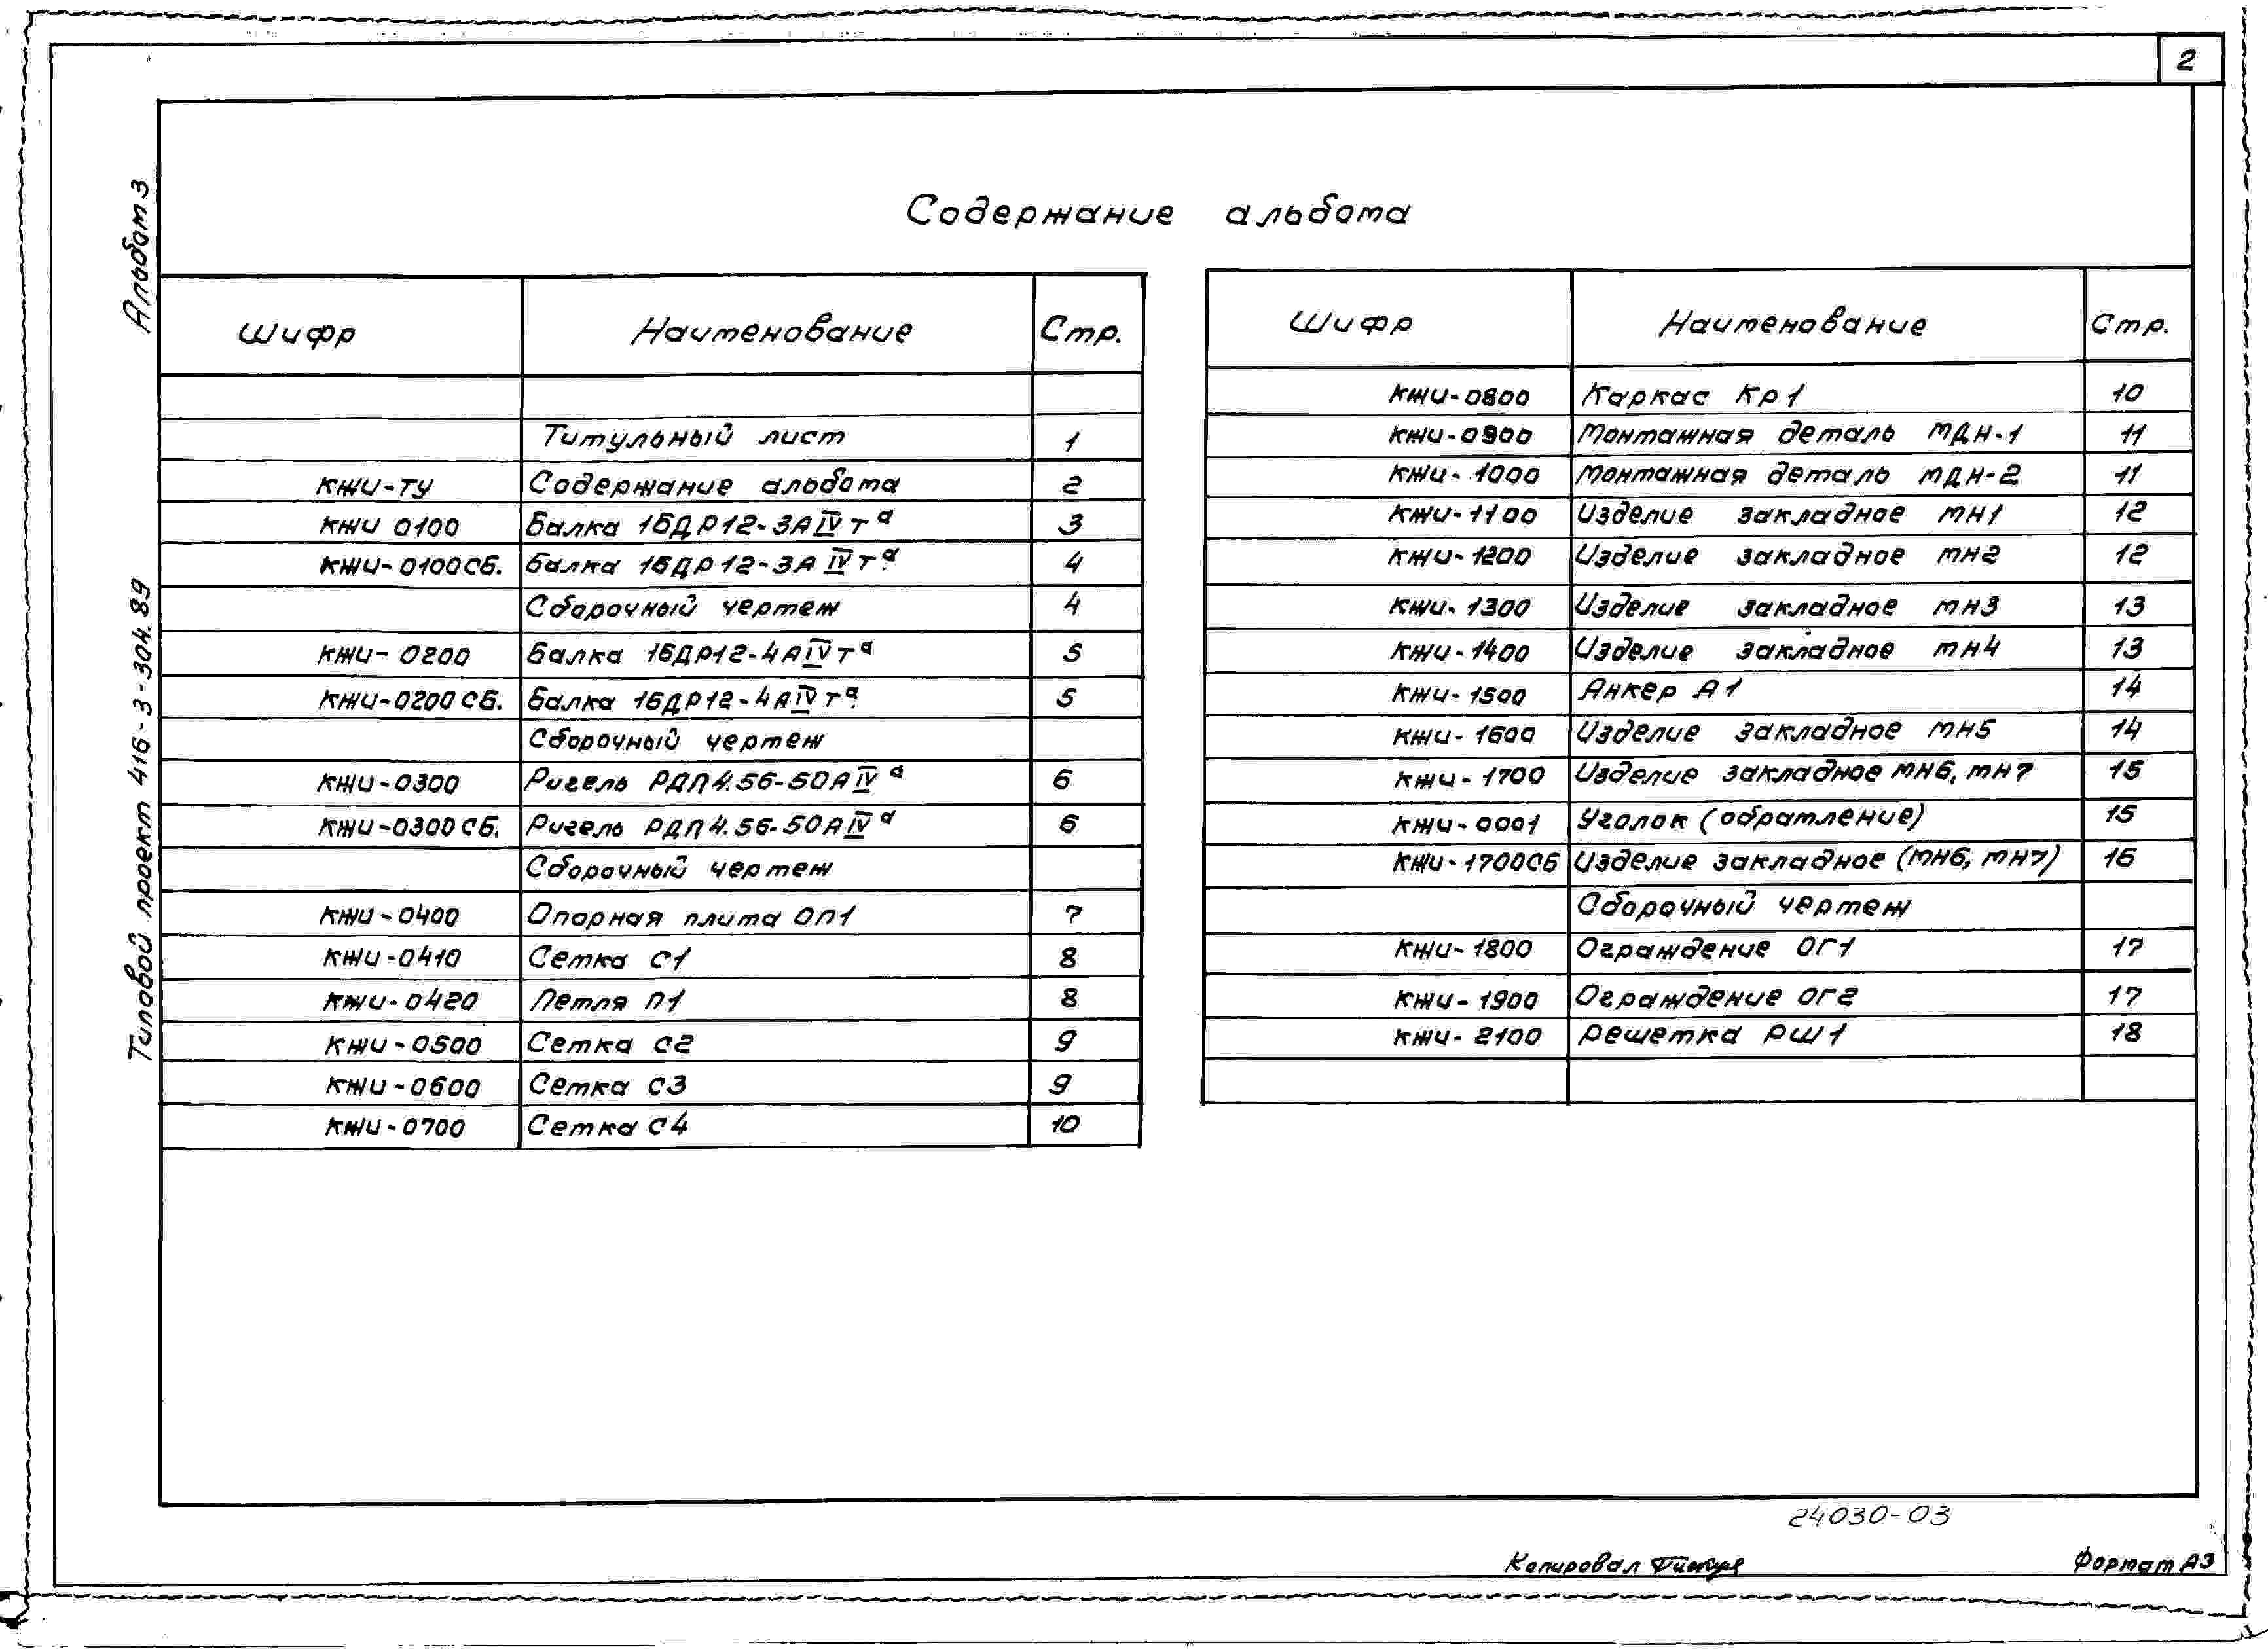 2
Альбом 3
Типовой проект 416-3-304.89
Содержание альбома
Шифр Наименование Стр.
Титульный лист 1
КЖИ-ТУ Содержание альбома 2
КЖИ 0100 Балка 1БДР12-3АIVтª 3
КЖИ-0100СБ. Балка 1БДР12-3АIVтª. 4
Сборочный чертеж 4
КЖИ-0200 Балка 1БДР12-4АIVтª 5
КЖИ-0200СБ. Балка 1БДР12-4АIVтª. 5
Сборочный чертеж
КЖИ-0300 Ригель РДП4.56-50АIVª 6
КЖИ-0300СБ. Ригель РДП4.56-50АIVª 6
Сборочный чертеж
КЖИ-0400 Опорная плита ОП1 7
КЖИ-0410 Сетка С1 8
КЖИ-0420 Петля П1 8
КЖИ-0500 Сетка С2 9
КЖИ-0600 Сетка С3 9
КЖИ-0700 Сетка С4 10
Шифр Наименование Стр.
КЖИ-0800 Каркас Кр1 10
КЖИ-0900 Монтажная деталь МДН-1 11
КЖИ-1000 Монтажная деталь МДН-2 11
КЖИ-1100 Изделие закладное МН1 12
КЖИ-1200 Изделие закладное МН2 12
КЖИ-1300 Изделие закладное МН3 13
КЖИ-1400 Изделие закладное МН4 13
КЖИ-1500 Анкер А1 14
КЖИ-1600 Изделие закладное МН5 14
КЖИ-1700 Изделие закладное МН6, МН7 15
КЖИ-0001 Уголок (обрамление) 15
КЖИ-1700СБ Изделие закладное (МН6, МН7) 16
Сборочный чертеж
КЖИ-1800 Ограждение ОГ1 17
КЖИ-1900 Ограждение ОГ2 17
КЖИ-2100 Решетка РШ1 18
24030-03
Копировал
Формат А3